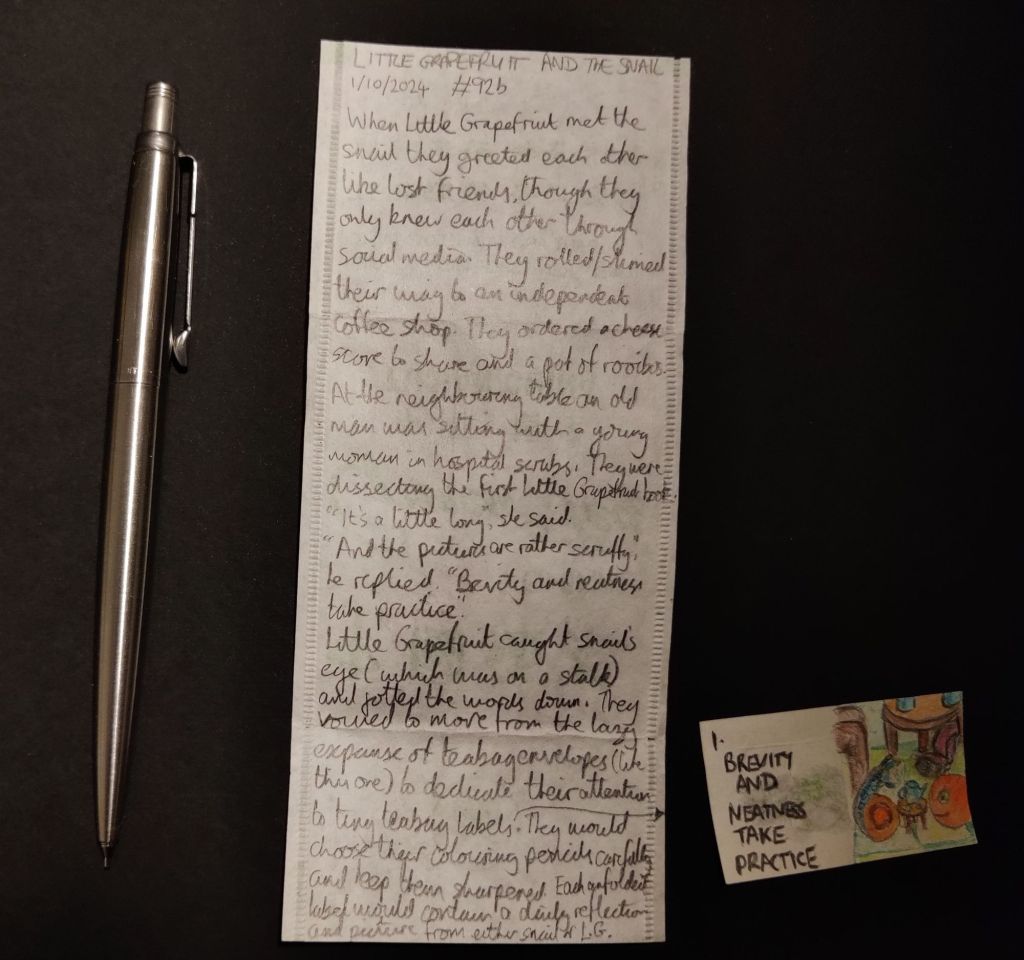 LITTLE GRAPEFRUIT AND THE SNAIL
1/10/2024 #92b
When Little Grapefruit met the
snail they greeted each other
like lost friends, though they
only knew each other through
social media. They rolled/slimed
their way to an independent
coffee shop. They ordered a cheese
scone to share and a pot of rooibos.
At the neighbouring table an old
man was sitting with a young
woman in hospital scrubs. They were
dissecting the first Little Grapefruit book.
"It's a little long", she said.
"And the pictures are rather scruffy",
he replied. "Brevity and neatness
take practice".
Little Grapefruit caught snail's
eye (which was on a stalk)
and jotted the words down. They
vowed to move from the lazy
expanse of teabag envelopes (like
this one) to dedicate their attention
to tiny teabag labels. They would
choose their colouring pencils carefully
and keep them sharpened. Each unfolded
label would contain a daily reflection
and picture from either snail or L.G.
1.
BREVITY
AND
NEATNESS
TAKE
PRACTICE